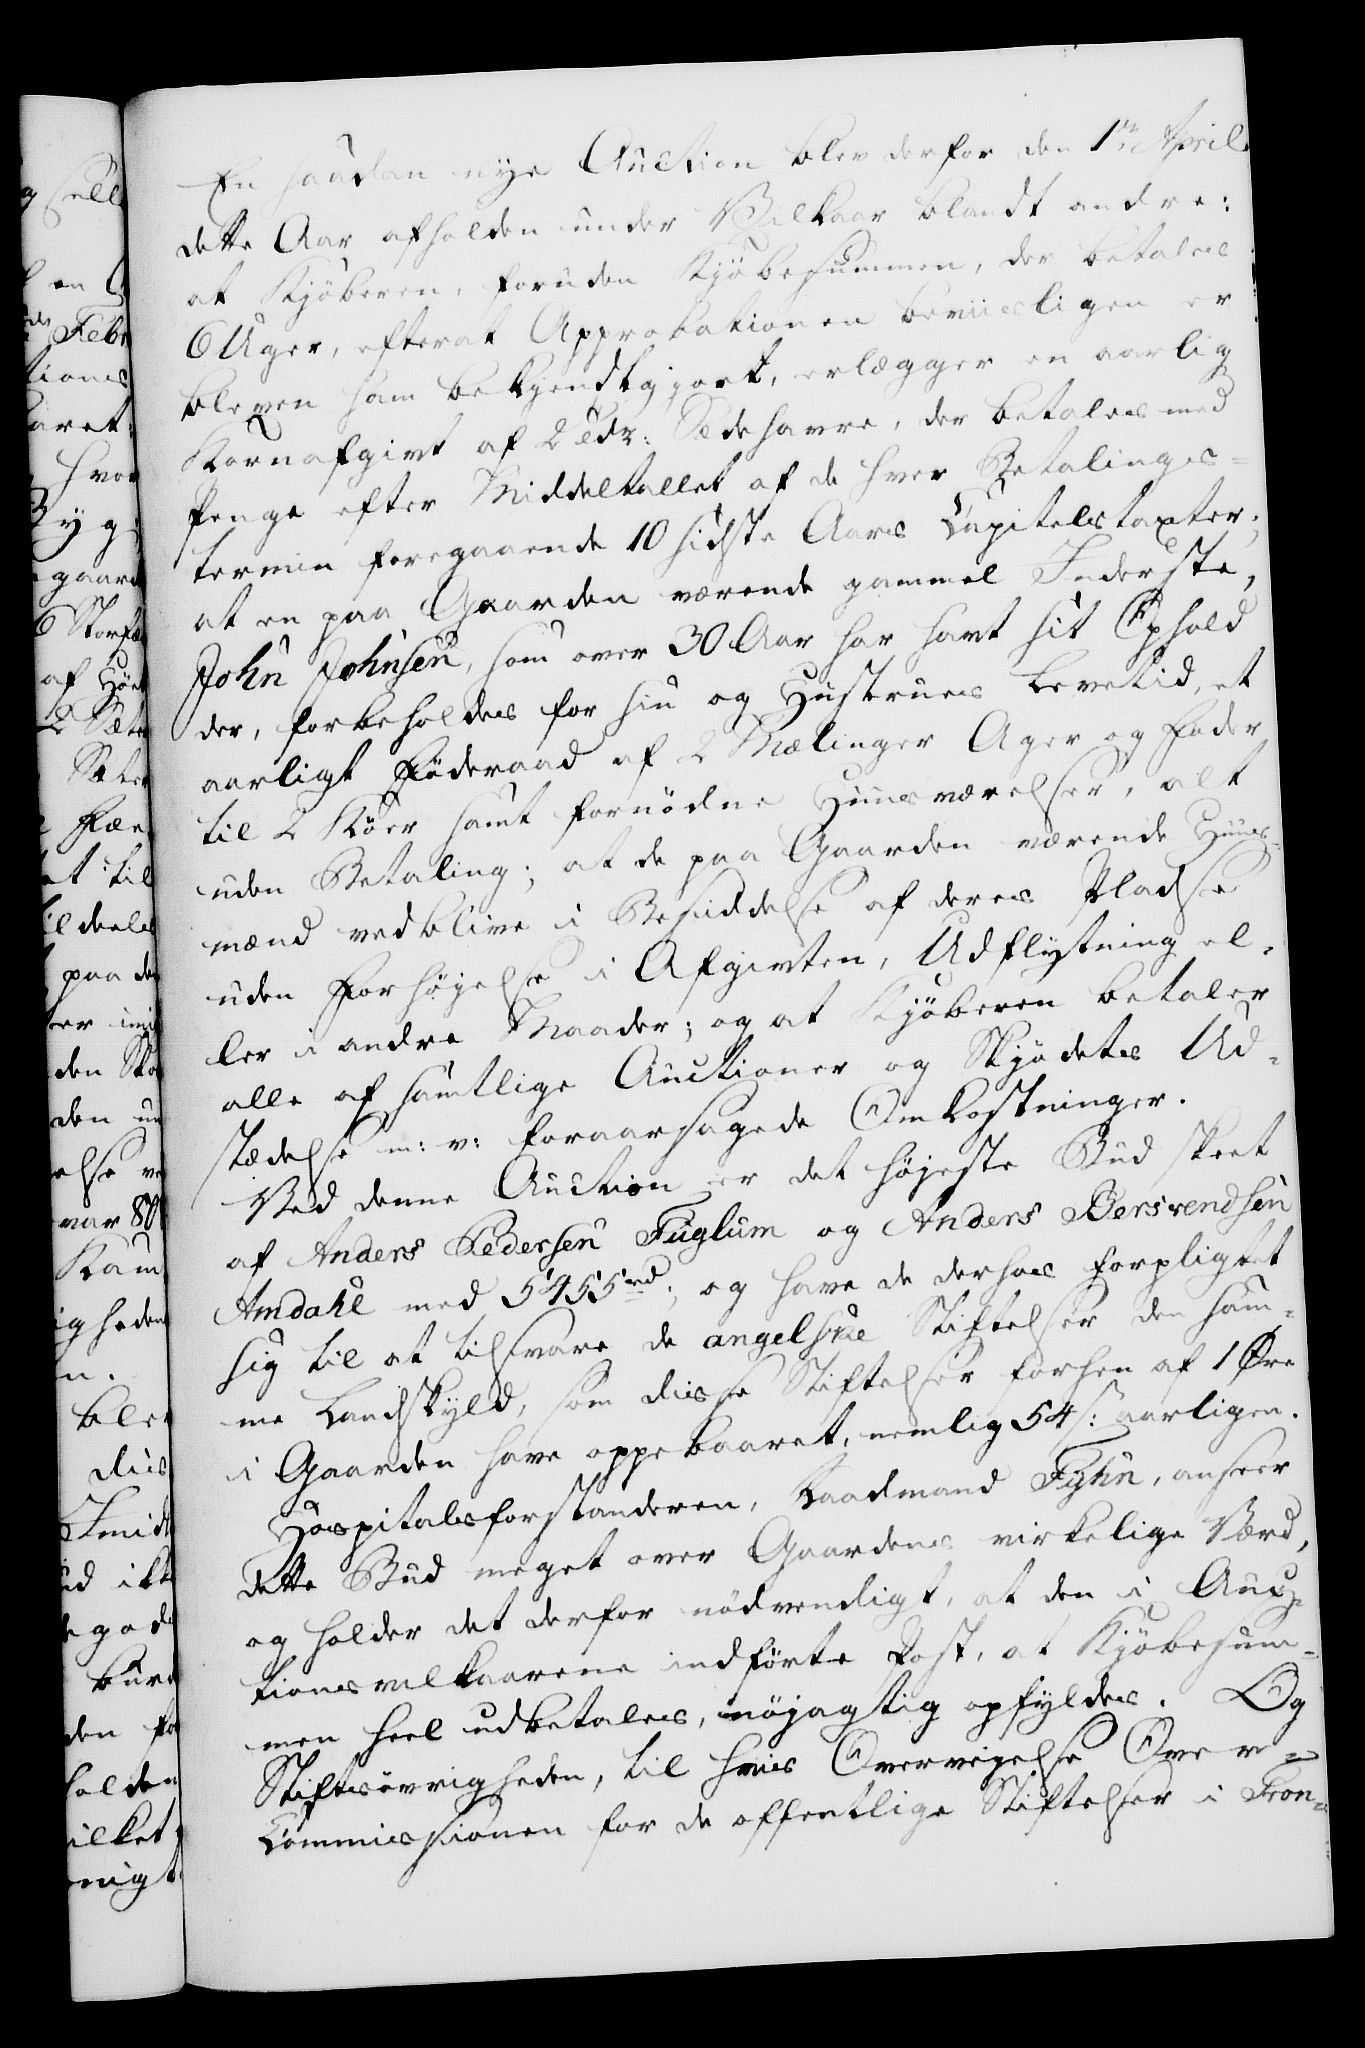 En saadan nye Auction blev derfor den 1ste April
dette Aar afholden under Vilkaar blandt andre:
at Kjöberen, foruden Kjöbesummen, der betales
6 Uger, efterat Approbationen beviisligen er
bleven ham bekjendtgjort, erlægger en aarlig
Kornafgivt af 2 Tdr: Sædehavre, der betales med
Penge efter Middeltallet af de hver Betalings-
termin foregaaende 10 sidste Aars Capitelstaxter;
at en paa Gaarden værende gammel Inderste,
John Johnsen, som over 30 Aar har havt sit Ophold
der, forbeholdes for sin og Hustrues Levetid, et
aarligt Föderaad af 2 Mælinger Ager og Foder
til 2 Köer samt fornödne Huusværelser, alt
uden Betaling; at de paa Gaarden værende Huus-
mænd vedblive i Besiddelse af deres Pladse
uden Forhöjelse i Afgivten, Udflytning el-
ler i andre Maader; og at Kjöberen betaler
alle af samtlige Auctioner og Skjödets Ud-
stædelse m: v: foraarsagede Omkostninger.
Ved denne Auction er det höjeste Bud skeet
af Anders Pedersen Fuglum og Anders Bersvendsen
Amdahl med 5455 rd; og have de derhos forpligtet
sig til at tilsvare de angelske Stiftelser den sam-
me Landskyld, som disse Stiftelser forhen af 1 Øre
i Gaarden have oppebaaret, nemlig 54 s: aarligen.
Hospitalsforstanderen, Raadmand Fyhn, anseer
dette Bud meget over Gaardens virkelige Værd,
og holder det derfor nödvendigt, at den i Auc-
tionsvilkaarene indförte Post, at Kjöbesum-
men heel udbetales, nöjagtig opfyldes. Og
Stiftsövrigheden, til hvis Overvejelse Over-
Commissionen for de offentlige Stiftelser i Tron-